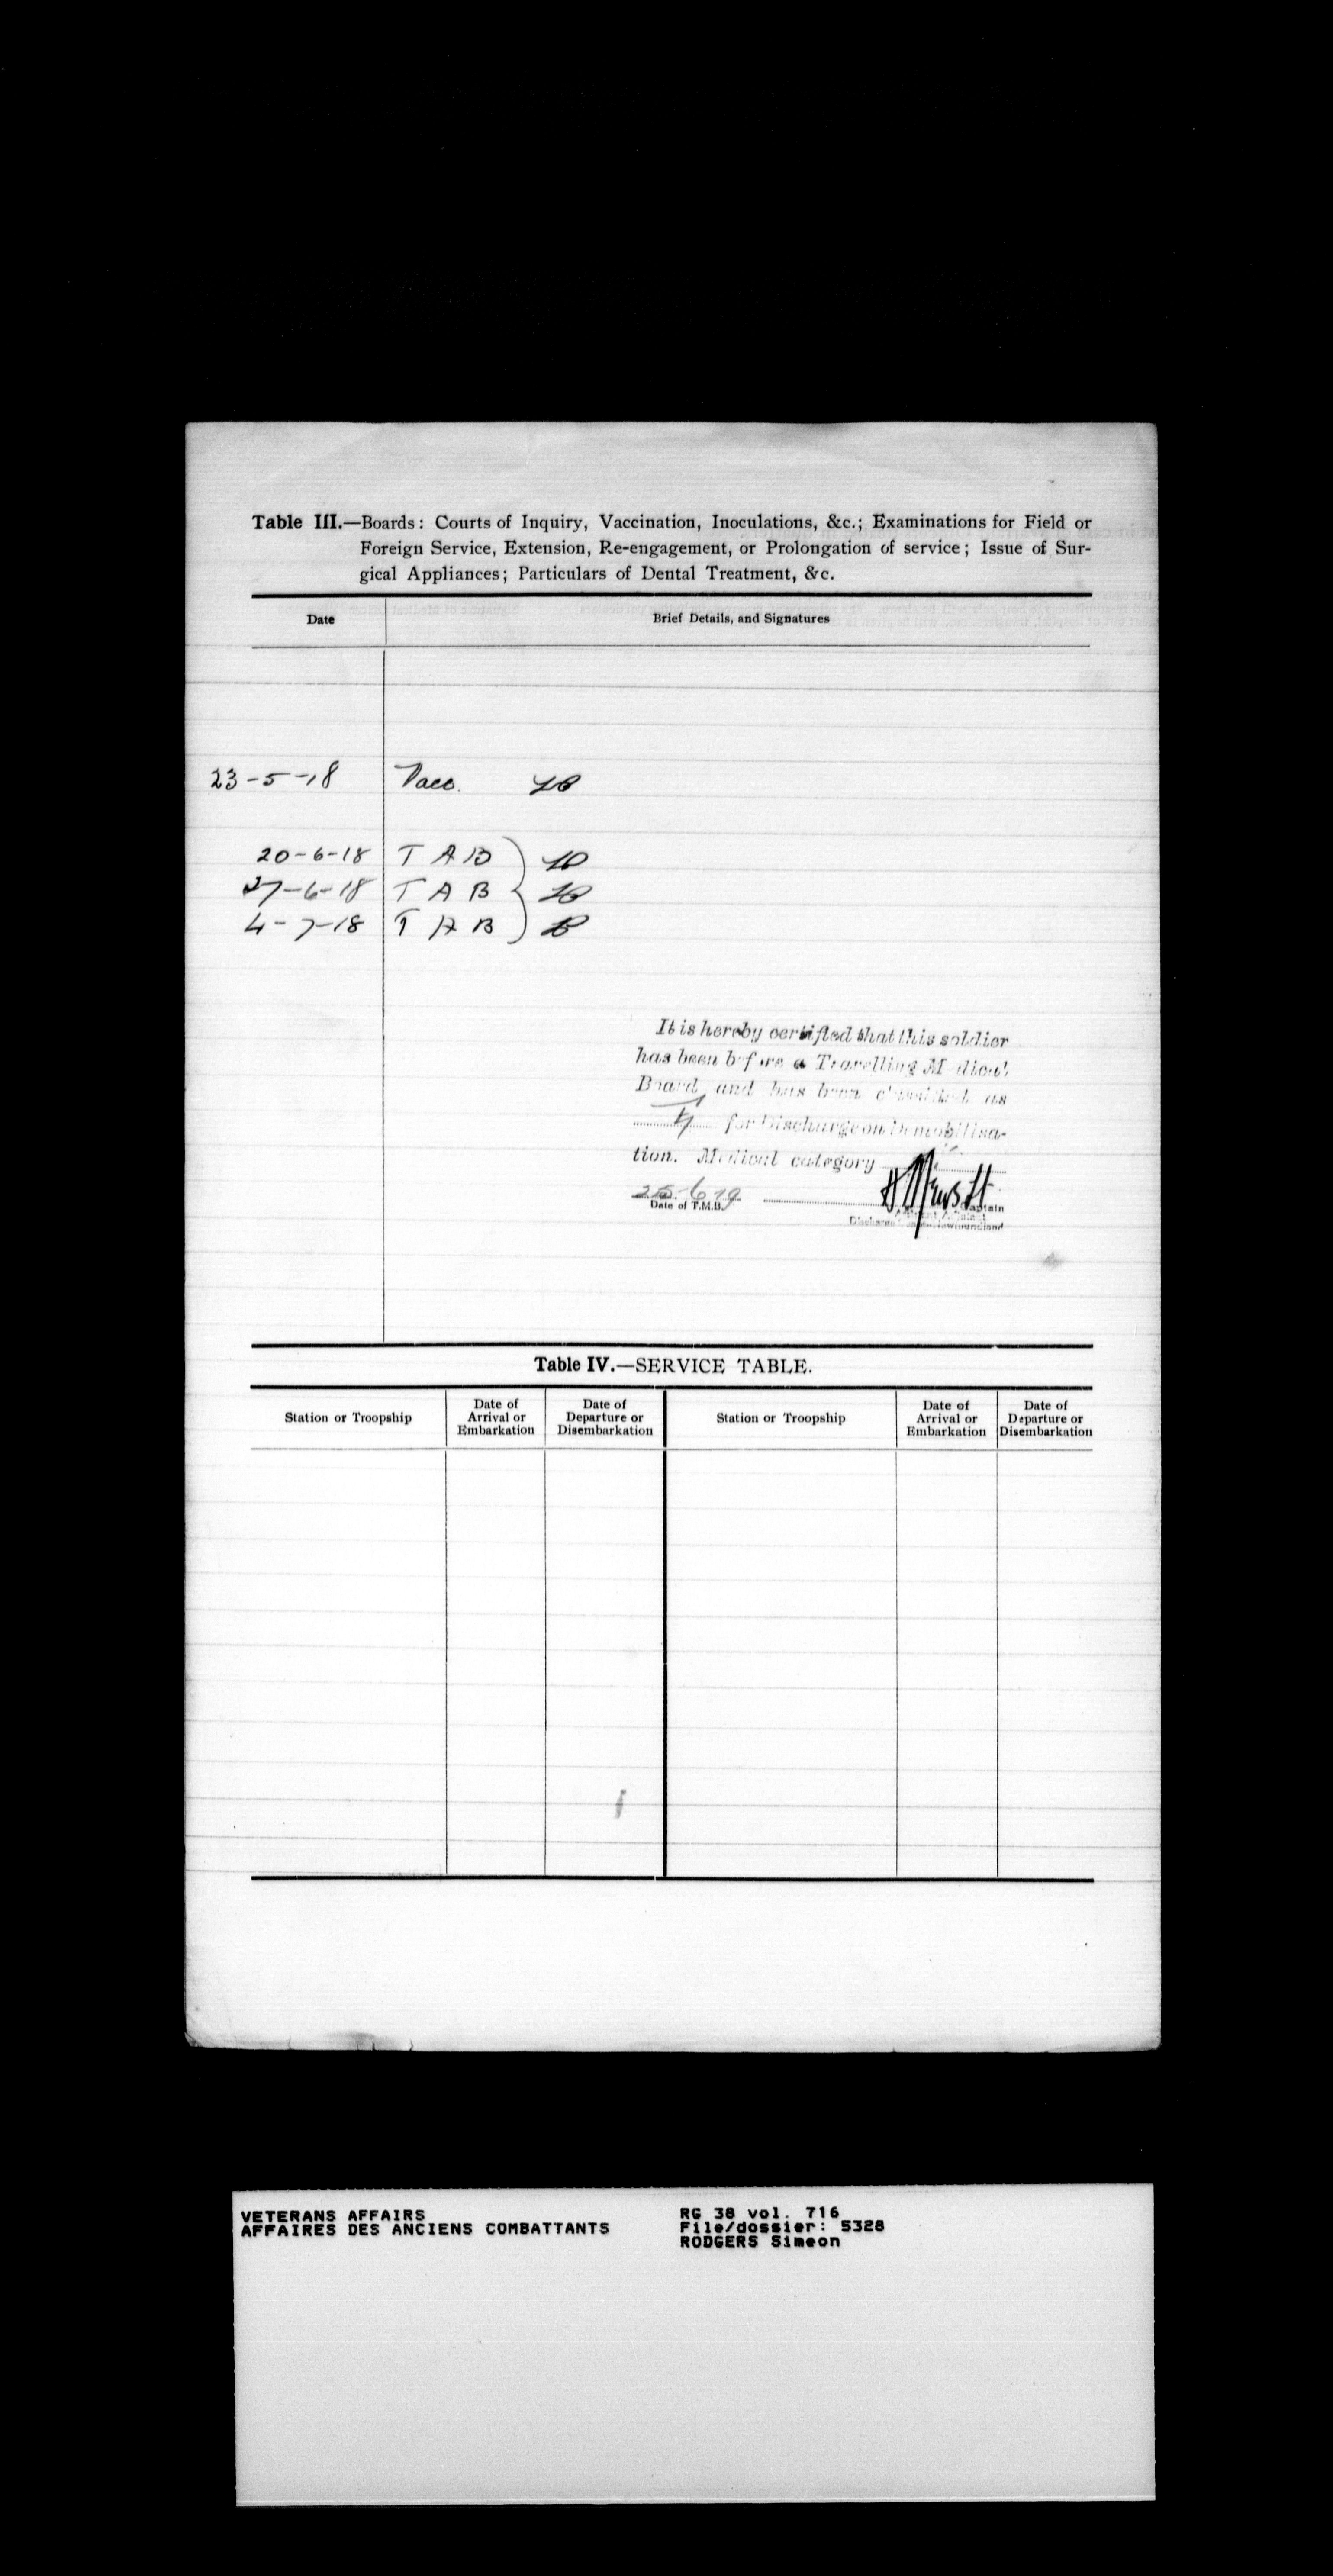 Table III.—Boards: Courts of Inquiry, Vaccination, Inoculations, &c.; Examinations for Field or
Foreign Service, Extension, Re-engagement, or Prolongation of service; Issue of Sur-
gical Appliances; Particulars of Dental Treatment, &c.
Date Brief Details, and Signatures
23-5-18 Vacc.
20-6-18 T A B
27-6-18 T A B
4-7-18 T A B
It is hereby certified that this soldier
has been before a Travelling Medical
Board and has been classified as
for Discharge on Demobilisa-
tion. Medical category
25-6-19
Date of T.M.B. Captain
Discharge Newfoundland
Table IV.—SERVICE TABLE.
Station or Troopship Date of Arrival or Embarkation Date of Departure or Disembarkation Station or Troopship Date of Arrival or Embarkation Date of Departure or Disembarkation
VETERANS AFFAIRS RG 38 vol. 716
AFFAIRES DES ANCIENS COMBATTANTS File/dossier: 5328
RODGERS Simeon